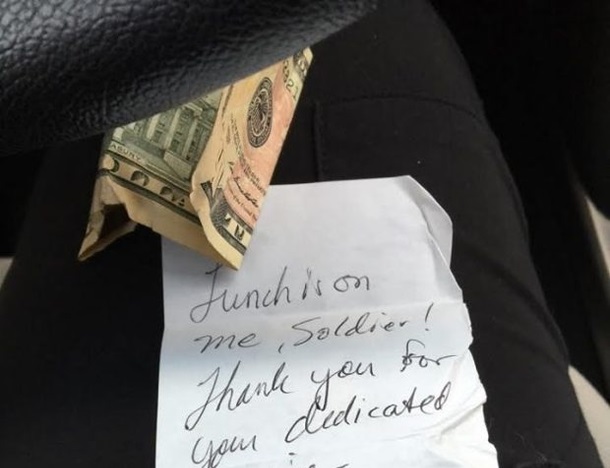 Lunch is on
me, Soldier!
Thank you for
your dedicated